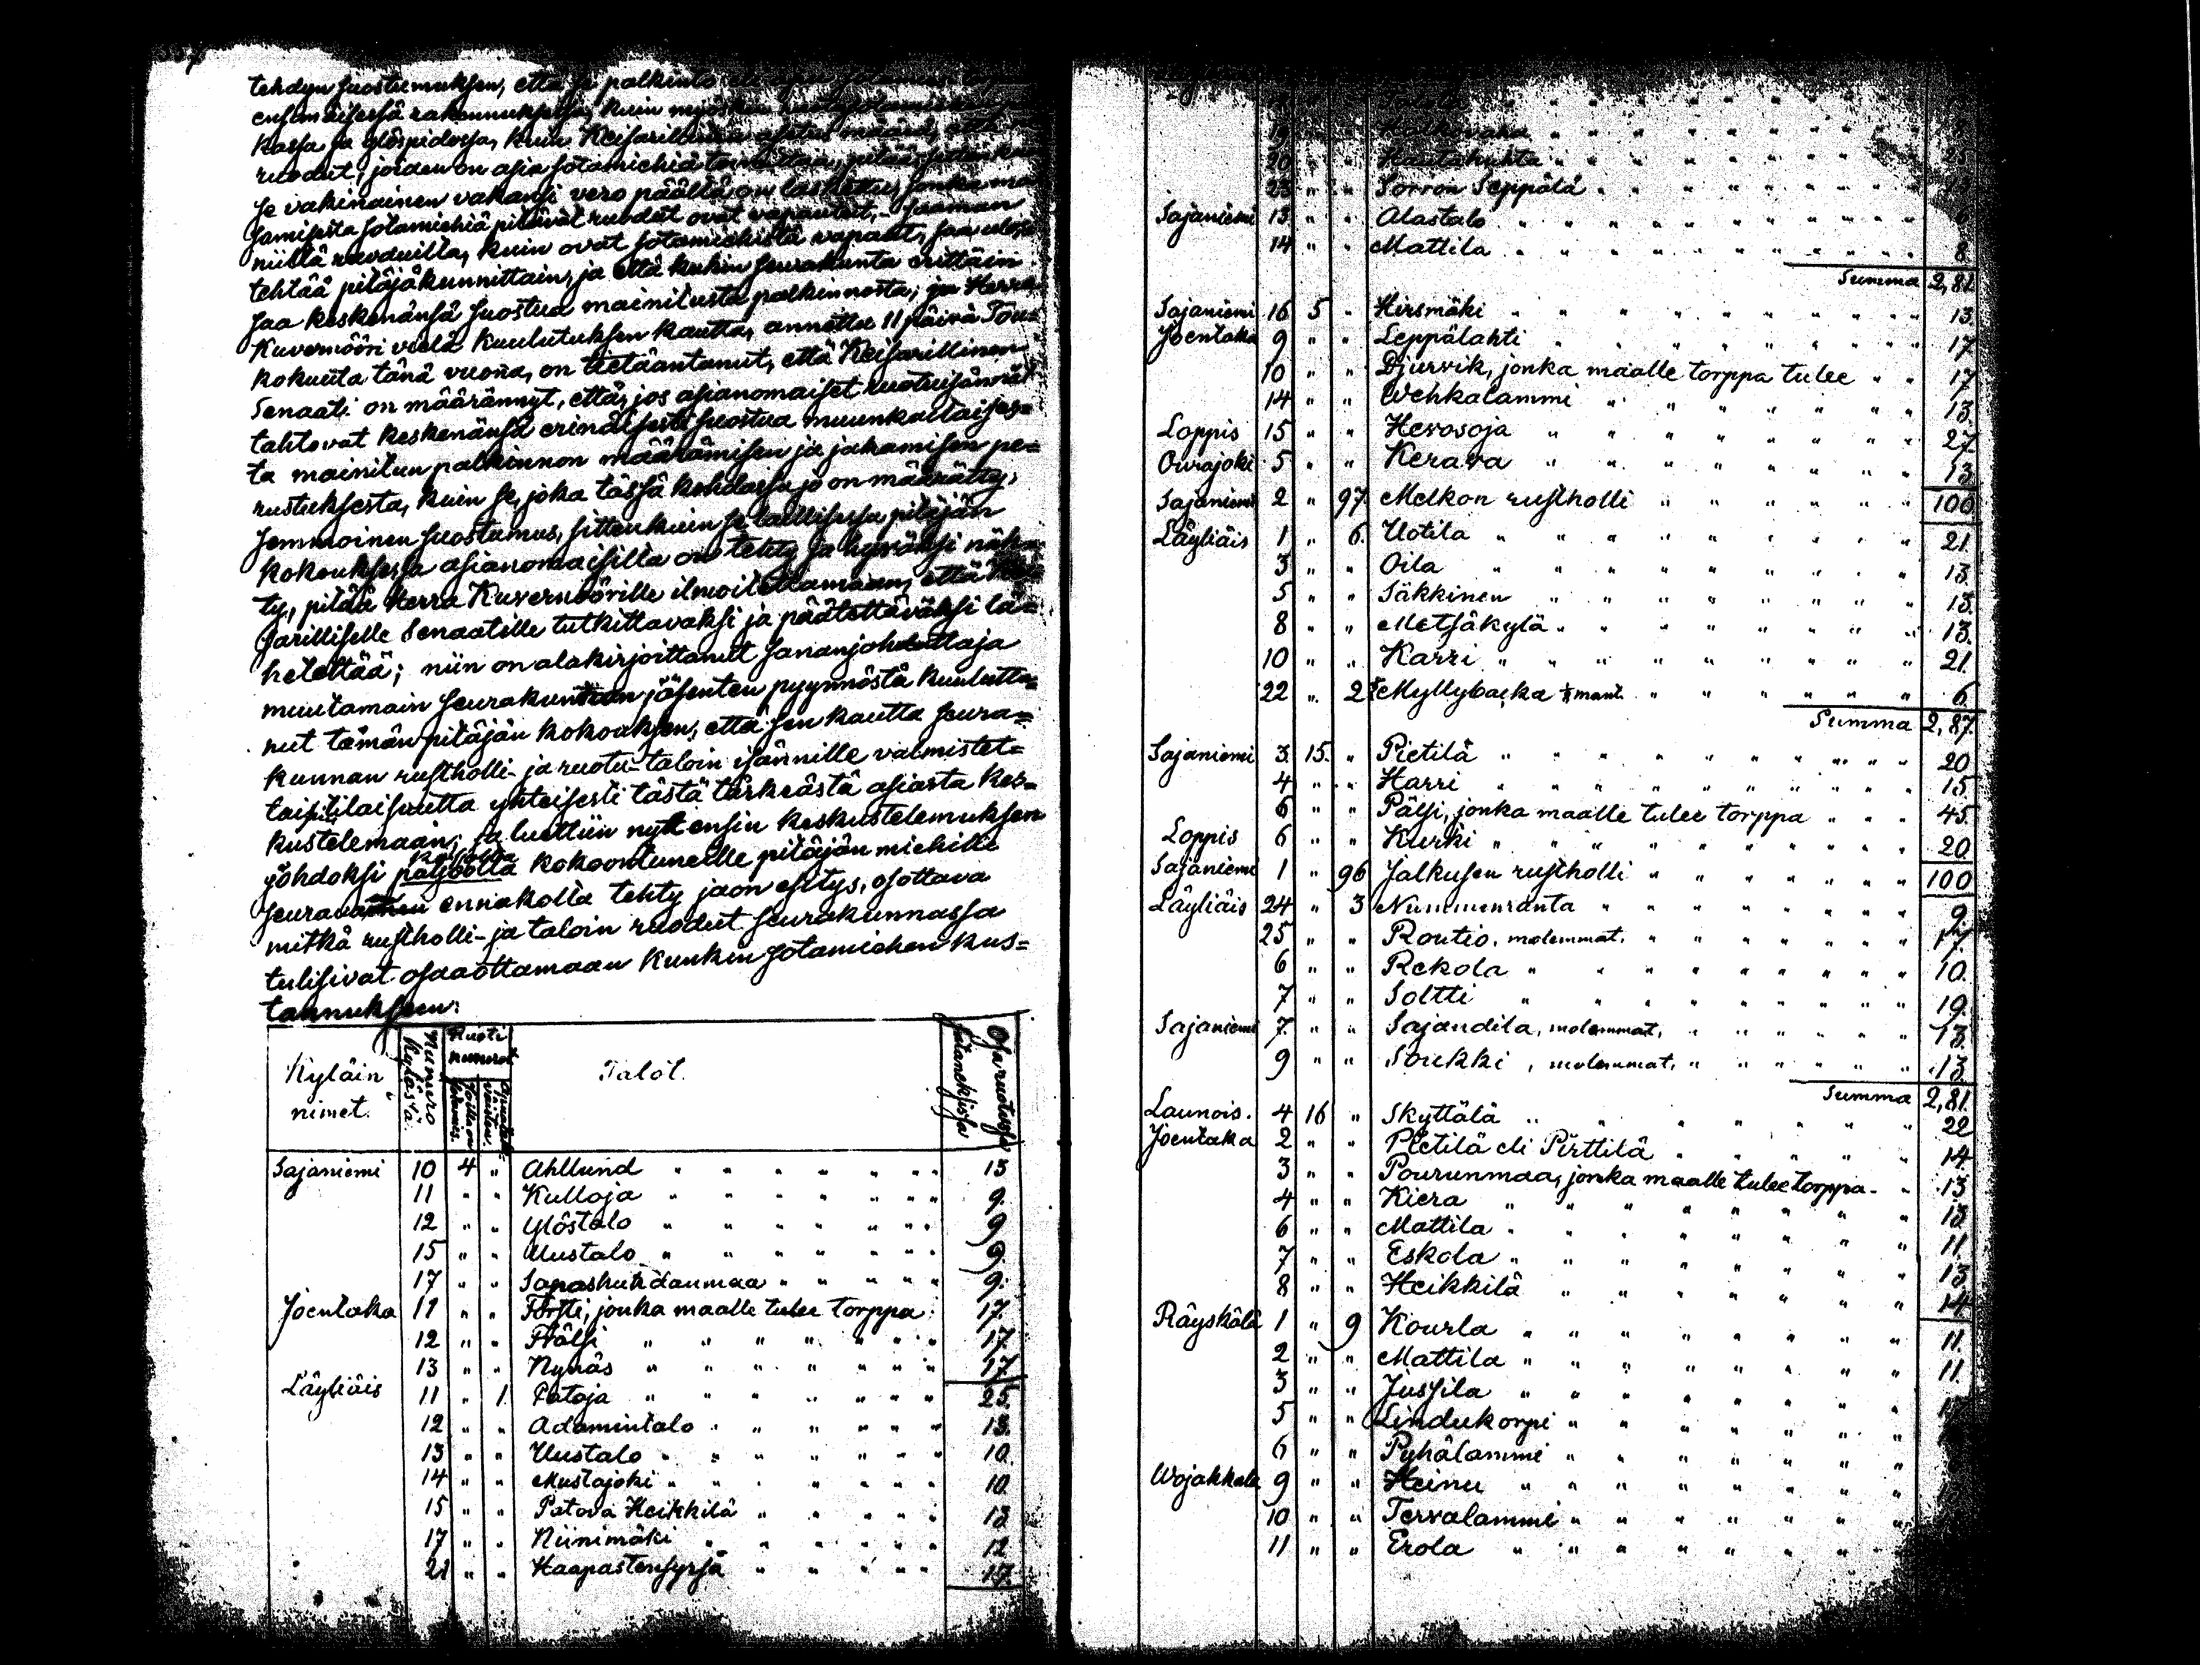 tehdyn suostumuksen, että se palkinto
ensimäisessä rakennuksessa, kuin myöskin
kassa ja ylöspidossa, kuin Keisarillinen asetus määrää, että
ruodut, joiden on asia sotamiehiä toimittaa, pitää sitten kun
se vakinainen vakansi vero päältä on laskettu, jonka
samisesta sotamiehiä pitävät ruodut ovat vapautut, saaman
niiltä ruoduilta, kuin ovat sotamiehistä vapaat, saa ulos
tehtää pitäjäkunnittain, ja että kukin seurakunta erittäin
saa keskenänsä suostua mainitusta palkinnosta; ja Herra
Kuvernööri vielä kuulutuksen kautta, annettu 11 päivä Tou=
kokuuta tänä vuona, on tietäantanut, että Keisarillinen
Senaati on määrännyt, että, jos asianomaiset ruotuisännät
tahtovat keskenänsä erinäisesti suostua muunkaltaises=
ta mainitun palkinnon määrämisen ja jakamisen pe=
rustuksesta, kuin se, joka tässä kohdassa jo on määrätty,
semmoinen suostumus, sittenkuin se laillisessa pitäjän
kokouksessa asianomaisilla on tehty ja hyväksi näh=
ty, pitää Herra Kuvernöörille ilmoitettamaan, että Kei=
sarilliselle Senaatille tutkittavaksi ja päätettäväksi lä=
hetettää; niin on alakirjoittanut sananjohdattaja
muutamain seurakunnan jäsenten pyynnöstä kuulutta=
nut tämän pitäjän kokouksen, että sen kautta seura=
kunnan rustholli- ja ruotu-taloin isännille valmistet=
taisi tilaisuutta yhteisesti tästä tärkeästä asiasta kes=
kustelemaan; ja luettiin nyt ensin keskustelemuksen
johdoksi paljolla kokoontuneille pitäjän miehille
seuraava ennakolla tehty jaon esitys, osottava
mitkä rustholli- ja taloin ruodut seurakunnassa
tulisivat osaaottamaan kunkin sotamiehen kus=
tannukseen:
Kyläin nimet. Numero kylässä. Ruoti numerot Talot. Osa ruotusa
Sajaniemi 10 4 " Ahllund " " " " " " 13
11 " " Kulloja " " " " " " 9.
12 " " Ylöstalo " " " " " " 9
15 " " Uustalo " " " " " " 9.
17 " " Sapashuhdanmaa " " " " " 9.
Joentaka 11 " " Försti, jonka maalle tulee torppa 17.
12 " " Prälsi " " " " " " 17.
13 " " Nynäs " " " " " " 17
Läyliäis 11 " 1. Pataja " " " " " " 25.
12 " " Adamintalo " " " " " 13.
13 " " Uustalo " " " " " " 10.
14 " " Mustajoki " " " " " " 10
15 " " Patova Heikkilä " " " " " 13
17 " " Niinimäki " " " " " 12
21 " " Haapastensyrjä " " " " " 17.
19 " " Halkovaha " " " " " "
20 " " Hautahuhta " " " " " " 25
23 " " Sorron Seppälä " " " " " "
Sajaniemi 13 " " Alastalo " " " " " " 6
14 " " Mattila " " " " " " 8
Summa 2,81.
Sajaniemi 16 5 " Hirsmäki " " " " " " 13.
Joentaka 9 " " Leppälahti " " " " " " 17
10 " " Djurvik, jonka maalle torppa tulee " " 17
14 " " Wehkalammi " " " " " " 13.
Loppis 15 " " Hevosoja " " " " " " 27.
Ourajoki 5 " " Kerava " " " " " " 13.
Sajaniemi 2 " 97. Melkon rustholli " " " " " 100
Läyliäis 1 " 6. Uotila " " " " " " 21.
3 " " Oila " " " " " " 13.
5 " " Säkkinen " " " " " " 13.
8 " " Metsäkylä " " " " " " 13.
10 " " Karri " " " " " " 21.
22 " 2 Myllybacka ⅓ mant. " " " " " 6
Summa 2,87.
Sajaniemi 3. 15. " Pietilä " " " " " " 20
4 " " Harri " " " " " " 15
6 " " Pälsi, jonka maalle tulee torppa " " " 45.
Loppis 6 " " Kurki " " " " " " 20
Sajaniemi 1 " 96 Jalkusen rustholli " " " " " 100
Läyliäis 24 " 3 Nummenranta " " " " " 9.
25 " " Routio, molemmat. " " " " " 17.
6 " " Rekola " " " " " " 10.
7 " " Soltti " " " " " " 19.
Sajaniemi 7. " " Sajandila, molemmat, " " " " " 13.
9 " " Soukki, molemmat, " " " " " 13.
Summa 2,81.
Launois. 4 16 " Skyttälä " " " " " 22
Joentaka 2 " " Pietilä eli Pirttilä " " " " 14.
3 " " Pourunmaa, jonka maalle tulee torppa - " 13
4 " " Kiera " " " " " " 13
6 " " Mattila " " " " " " 11.
7 " " Eskola " " " " " " 13.
8 " " Heikkilä " " " " " " 14
Räyskälä 1 " 9 Kourla " " " " " " 11.
2 " " Mattila " " " " " " 11.
3 " " Jussila " " " " " "
5 " " Lindukorpi " " " " " "
6 " " Pyhälammi " " " " " "
Wojakkala 9 " " Heinu " " " " " "
10 " " Tervalammi " " " " " "
11 " " Erola " " " " " "